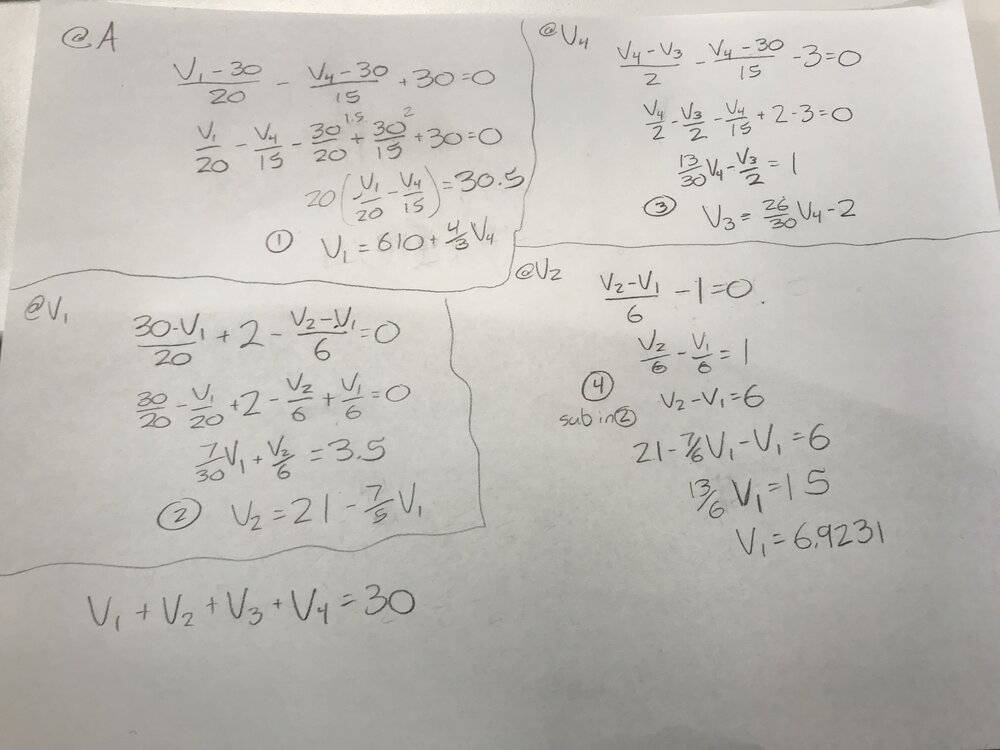 @A
(V₁ - 30)/20 - (V₄ - 30)/15 + 30 = 0
V₁/20 - V₄/15 - 30/20 1.5 + 30/15 2 + 30 = 0
20(V₁/20 - V₄/15) = 30.5
① V₁ = 610 + 4/3 V₄
@V₄
(V₄ - V₃)/2 - (V₄ - 30)/15 - 3 = 0
V₄/2 - V₃/2 - V₄/15 + 2 - 3 = 0
13/30 V₄ - V₃/2 = 1
③ V₃ = 26/30 V₄ - 2
@V₁
(30 - V₁)/20 + 2 - (V₂ - V₁)/6 = 0
30/20 - V₁/20 + 2 - V₂/6 + V₁/6 = 0
7/30 V₁ + V₂/6 = 3.5
② V₂ = 21 - 7/5 V₁
@V₂
(V₂ - V₁)/6 - 1 = 0.
V₂/6 - V₁/6 = 1
④ V₂ - V₁ = 6
sub in ②
21 - 7/6 V₁ - V₁ = 6
13/6 V₁ = 15
V₁ = 6.9231
V₁ + V₂ + V₃ + V₄ = 30